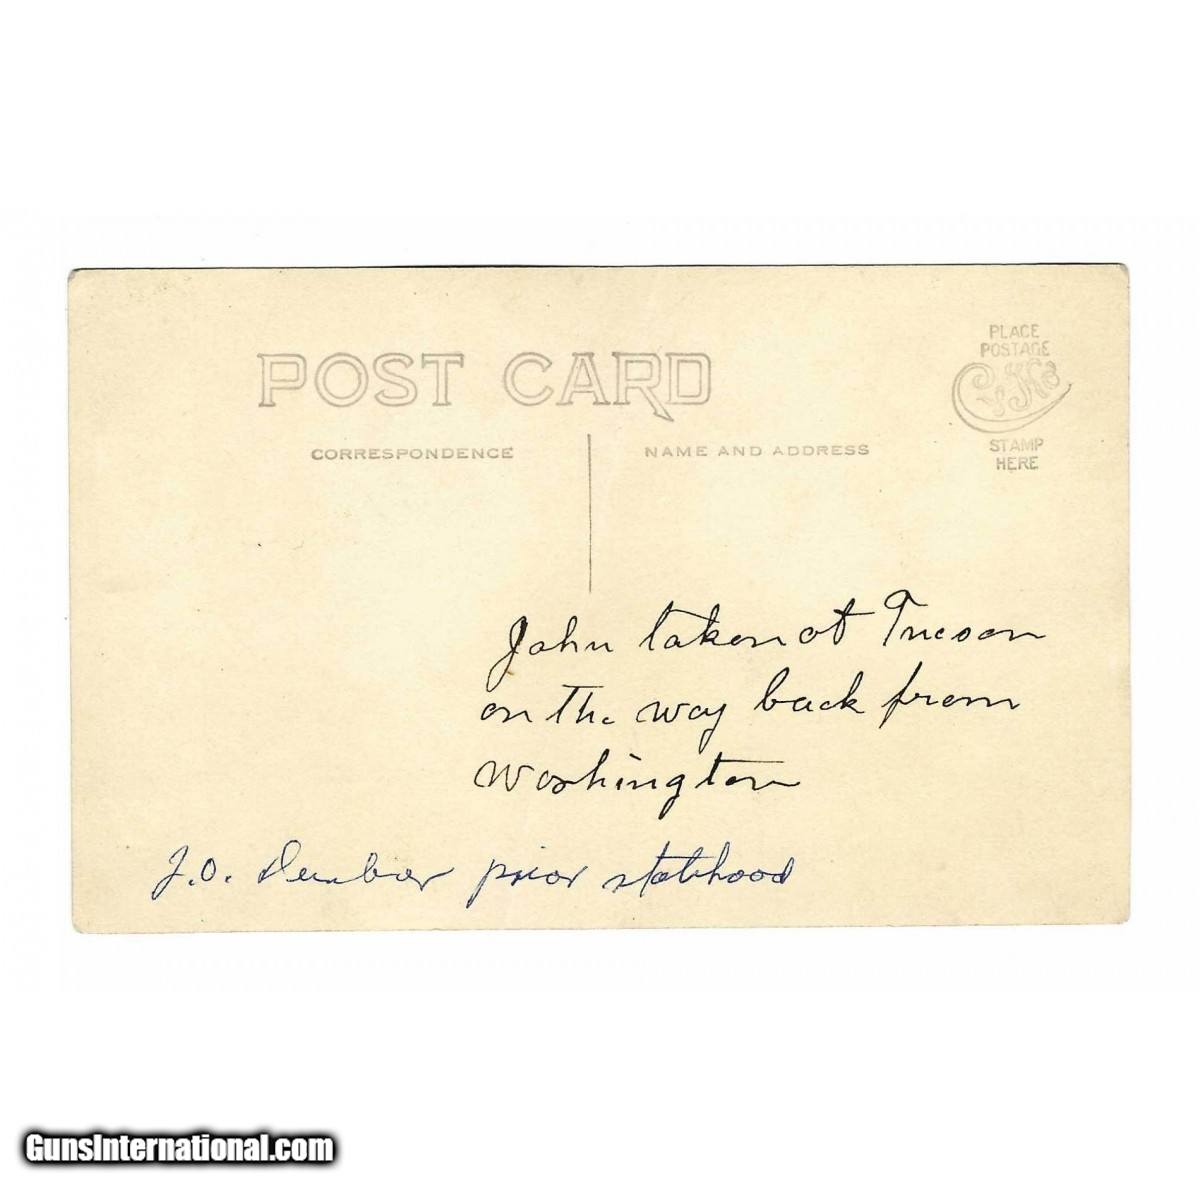 POST CARD
PLACE
POSTAGE
STAMP
HERE
CORRESPONDENCE
NAME AND ADDRESS
John taken at Tucson
on the way back from
Washington
J.O. Dunbar prior statehood
GunsInternational.com